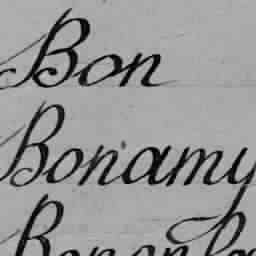 Bon
Bonamy